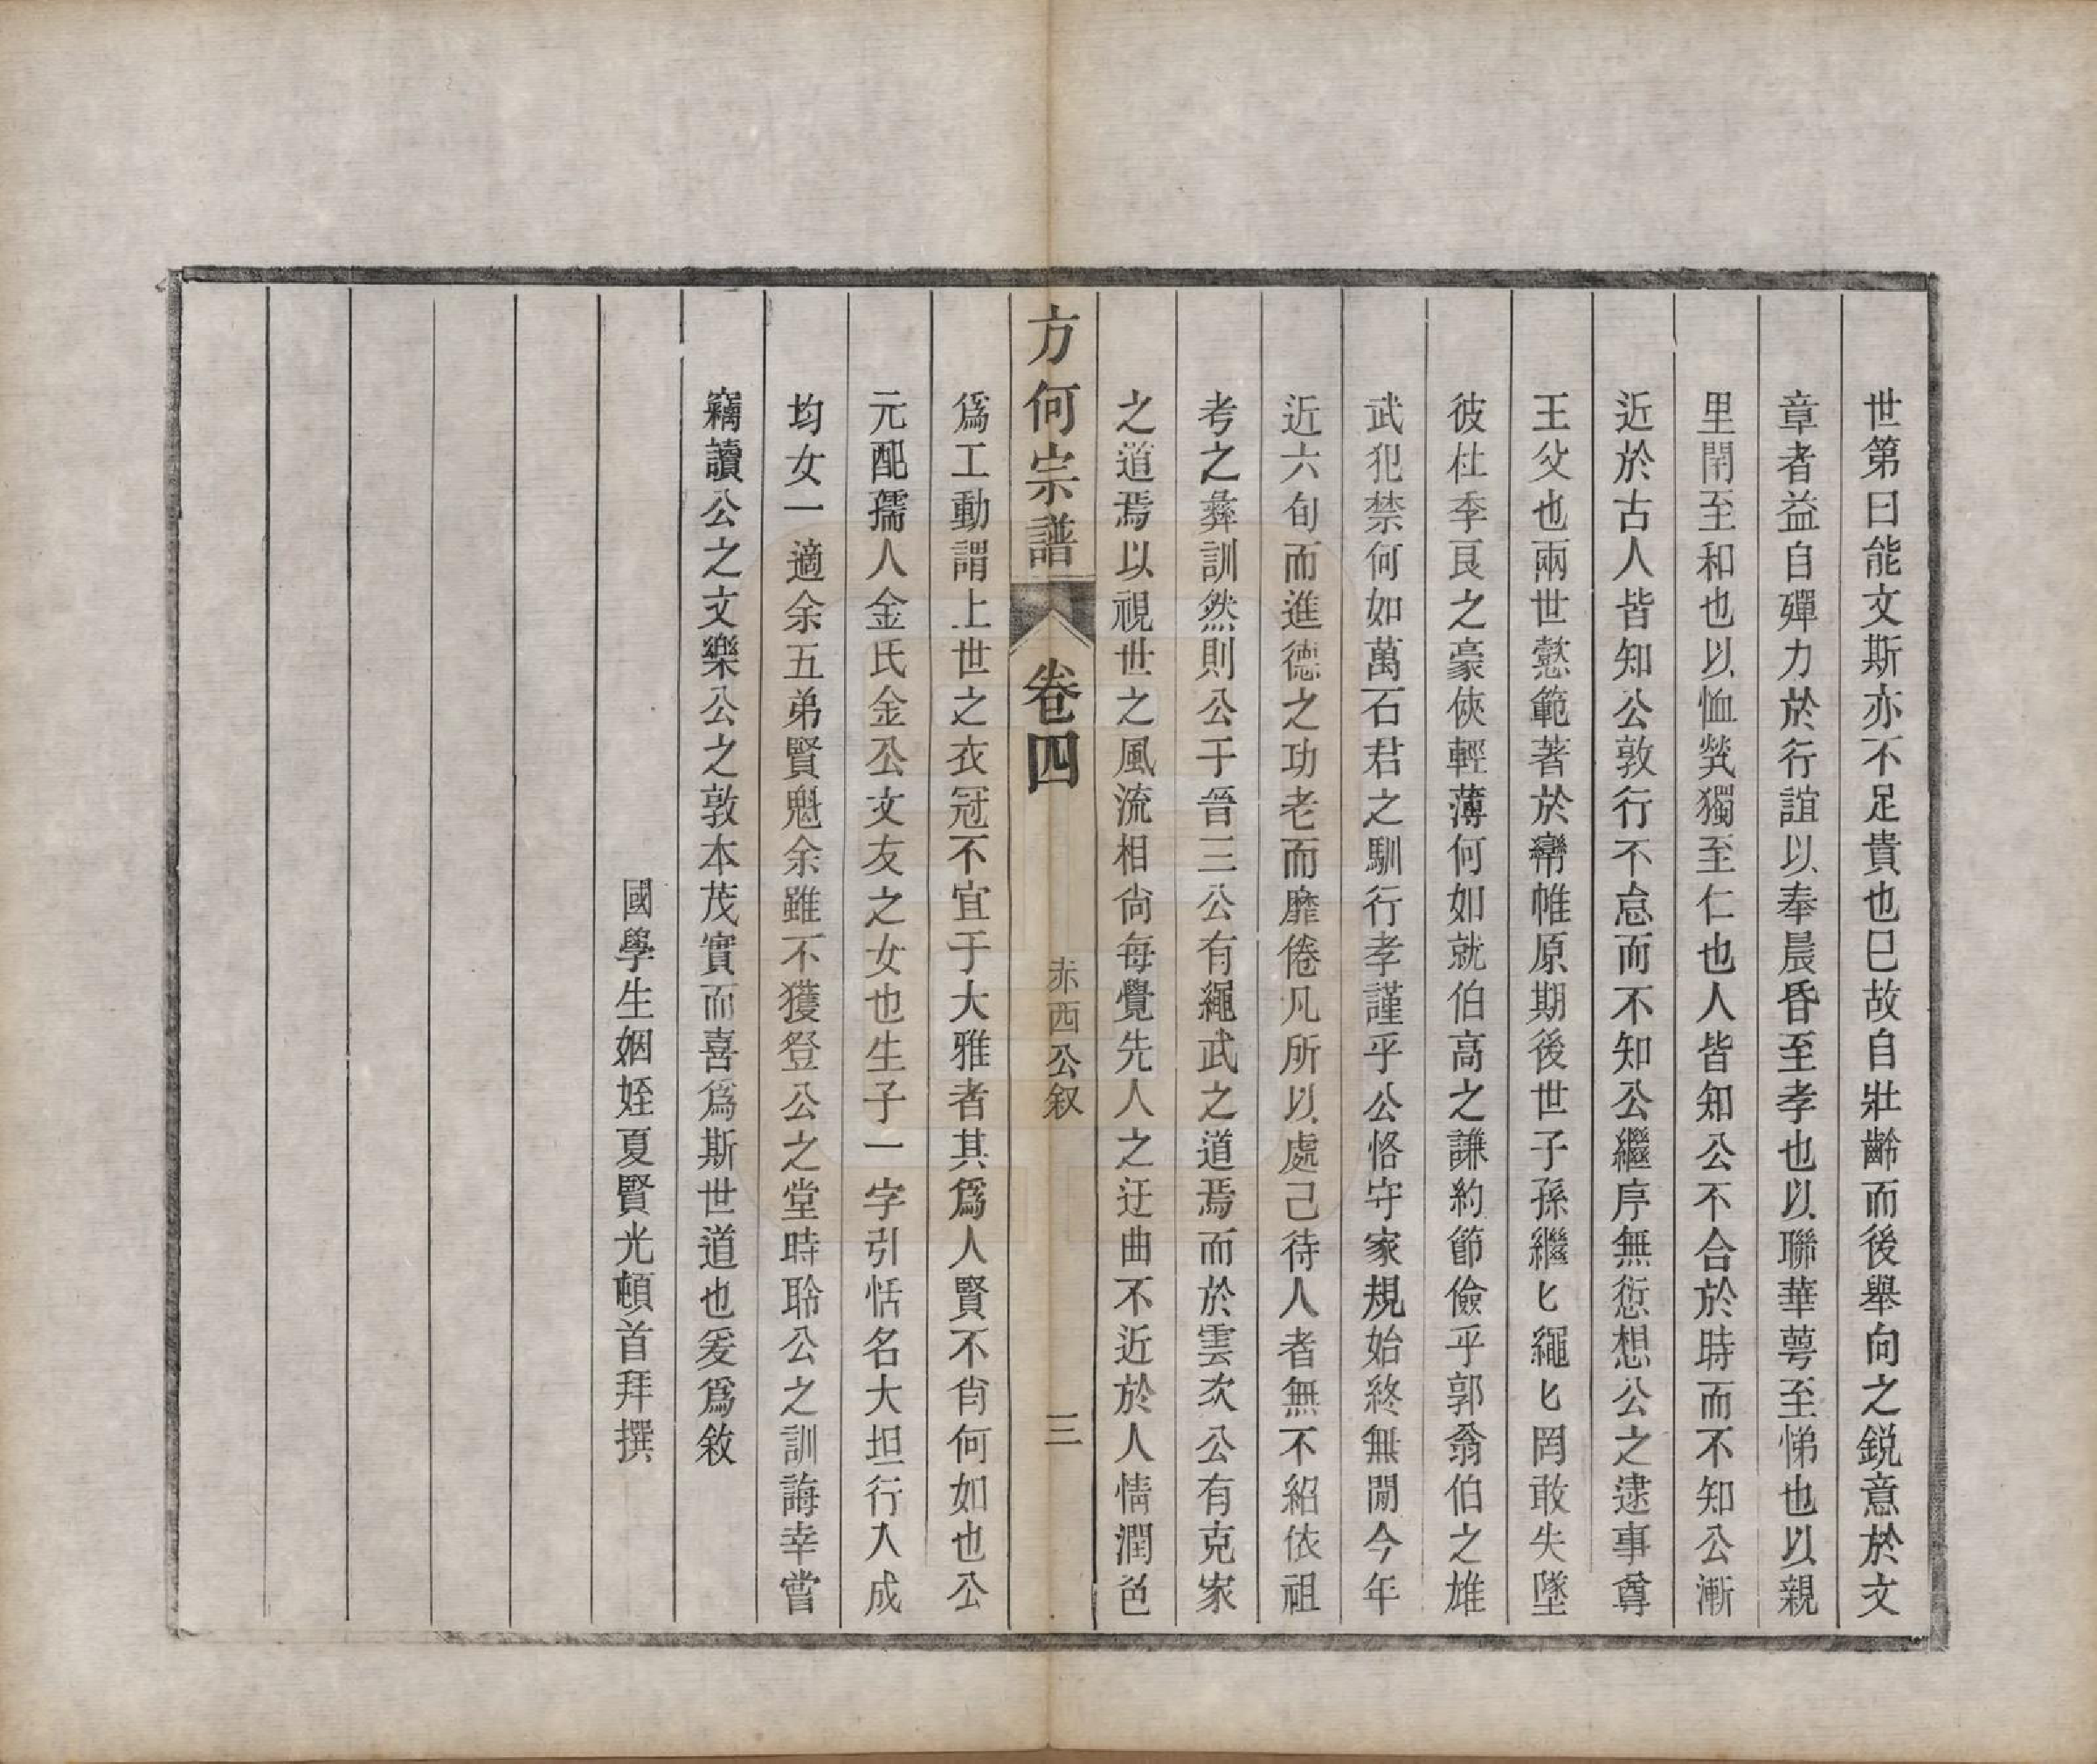 世第曰能文斯亦不足貴也巳故自壯齡而後舉向之鋭意於文
章者益自殫力於行誼以奉晨昏至孝也以聯華萼至悌也以親
里閈至和也以恤煢獨至仁也人皆知公不合於時而不知公漸
近於古人皆知公敦行不怠而不知公繼序無愆想公之逮事尊
王父也兩世懿範著於幃帷原期後世子孫繼匕繩匕罔敢失墜
彼杜季良之豪俠輕薄何如就伯高之謙約節儉乎郭翁伯之雄
武犯禁何如萬石君之馴行孝謹乎公恪守家規始終無閒今年
近六旬而進德之功老而靡倦凡所以處己待人者無不紹依祖
考之彝訓然則公于晉三公有繩武之道焉而於雲次公有克家
之道焉以視世之風流相尚每覺先人之迂曲不近於人情潤色
方何宗譜 卷四 赤西公叙 三
爲工動謂上世之衣冠不宜于大雅者其爲人賢不肖何如也公
元配孺人金氏金公文友之女也生子一字引恬名大坦行入成
均女一適余五弟賢魁余雖不獲登公之堂時聆公之訓誨幸嘗
竊讀公之文樂公之敦本茂實而喜爲斯世道也爰爲敘
國學生姻姪夏賢光頓首拜撰